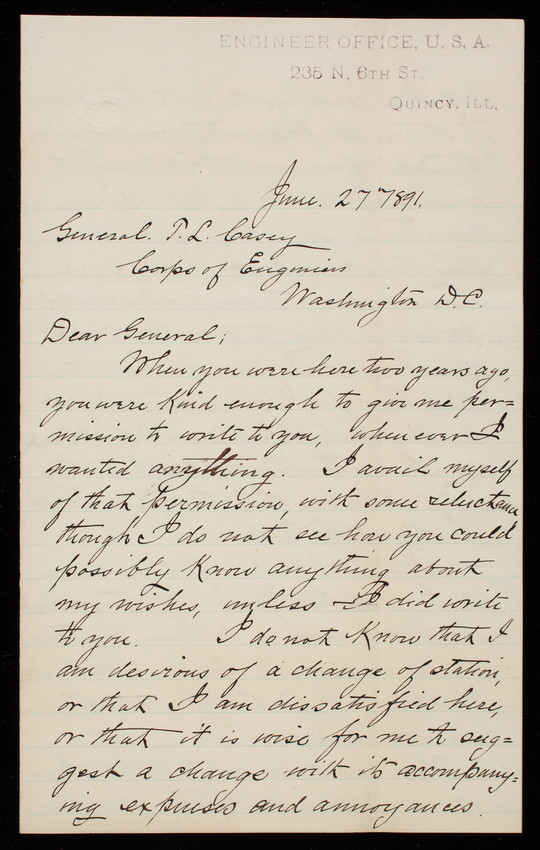 ENGINEER OFFICE, U. S. A.
235 N. 6TH ST.
QUINCY, ILL.
June. 27th 1891.
General. T. L. Casey
Corps of Engineers
Washington D.C.
Dear General;
When you were here two years ago,
you were kind enough to give me per=
mission to write to you, whenever I
wanted anything. I avail myself
of that permission, with some reluctance
though I do not see how you could
possibly know anything about
my wishes, unless I did write
to you. I do not know that I
am desirous of a change of station,
or that I am dissatisfied here,
or that it is wise for me to sug=
gest a change with its accompany=
ing expenses and annoyances.